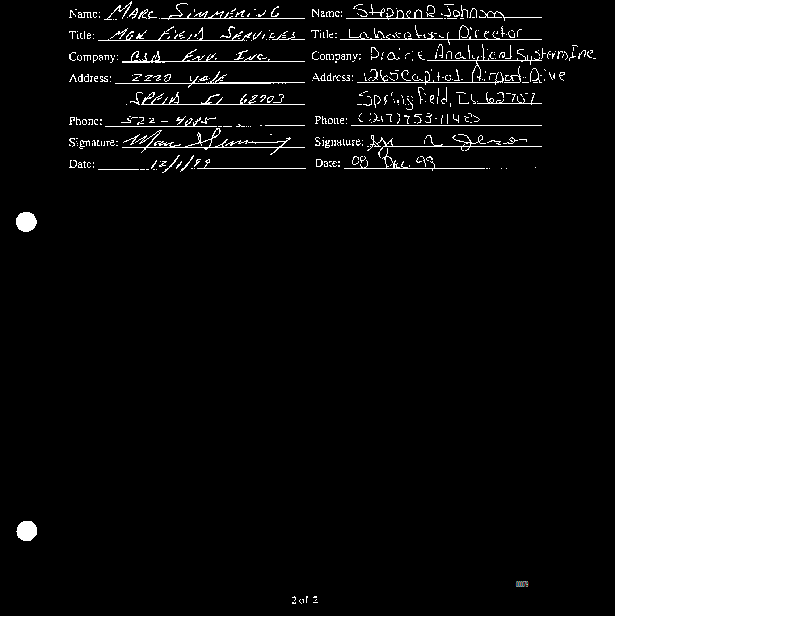 Name: MARC SIMMERING
Title: MGR FIELD SERVICES
Company: CSD ENV. INC.
Address: 2220 Yale
SPFLD Il 62703
Phone: 522-4085
Signature:
Date: 12/1/99
Name: Stephen R. Johnson
Title: Laboratory Director
Company: Prairie Analytical Systems, Inc
Address: 1265 Capitol Airport Drive
Springfield, IL 62707
Phone: (217) 753-1148
Signature:
Date: 08 Dec. 99
2 of 2